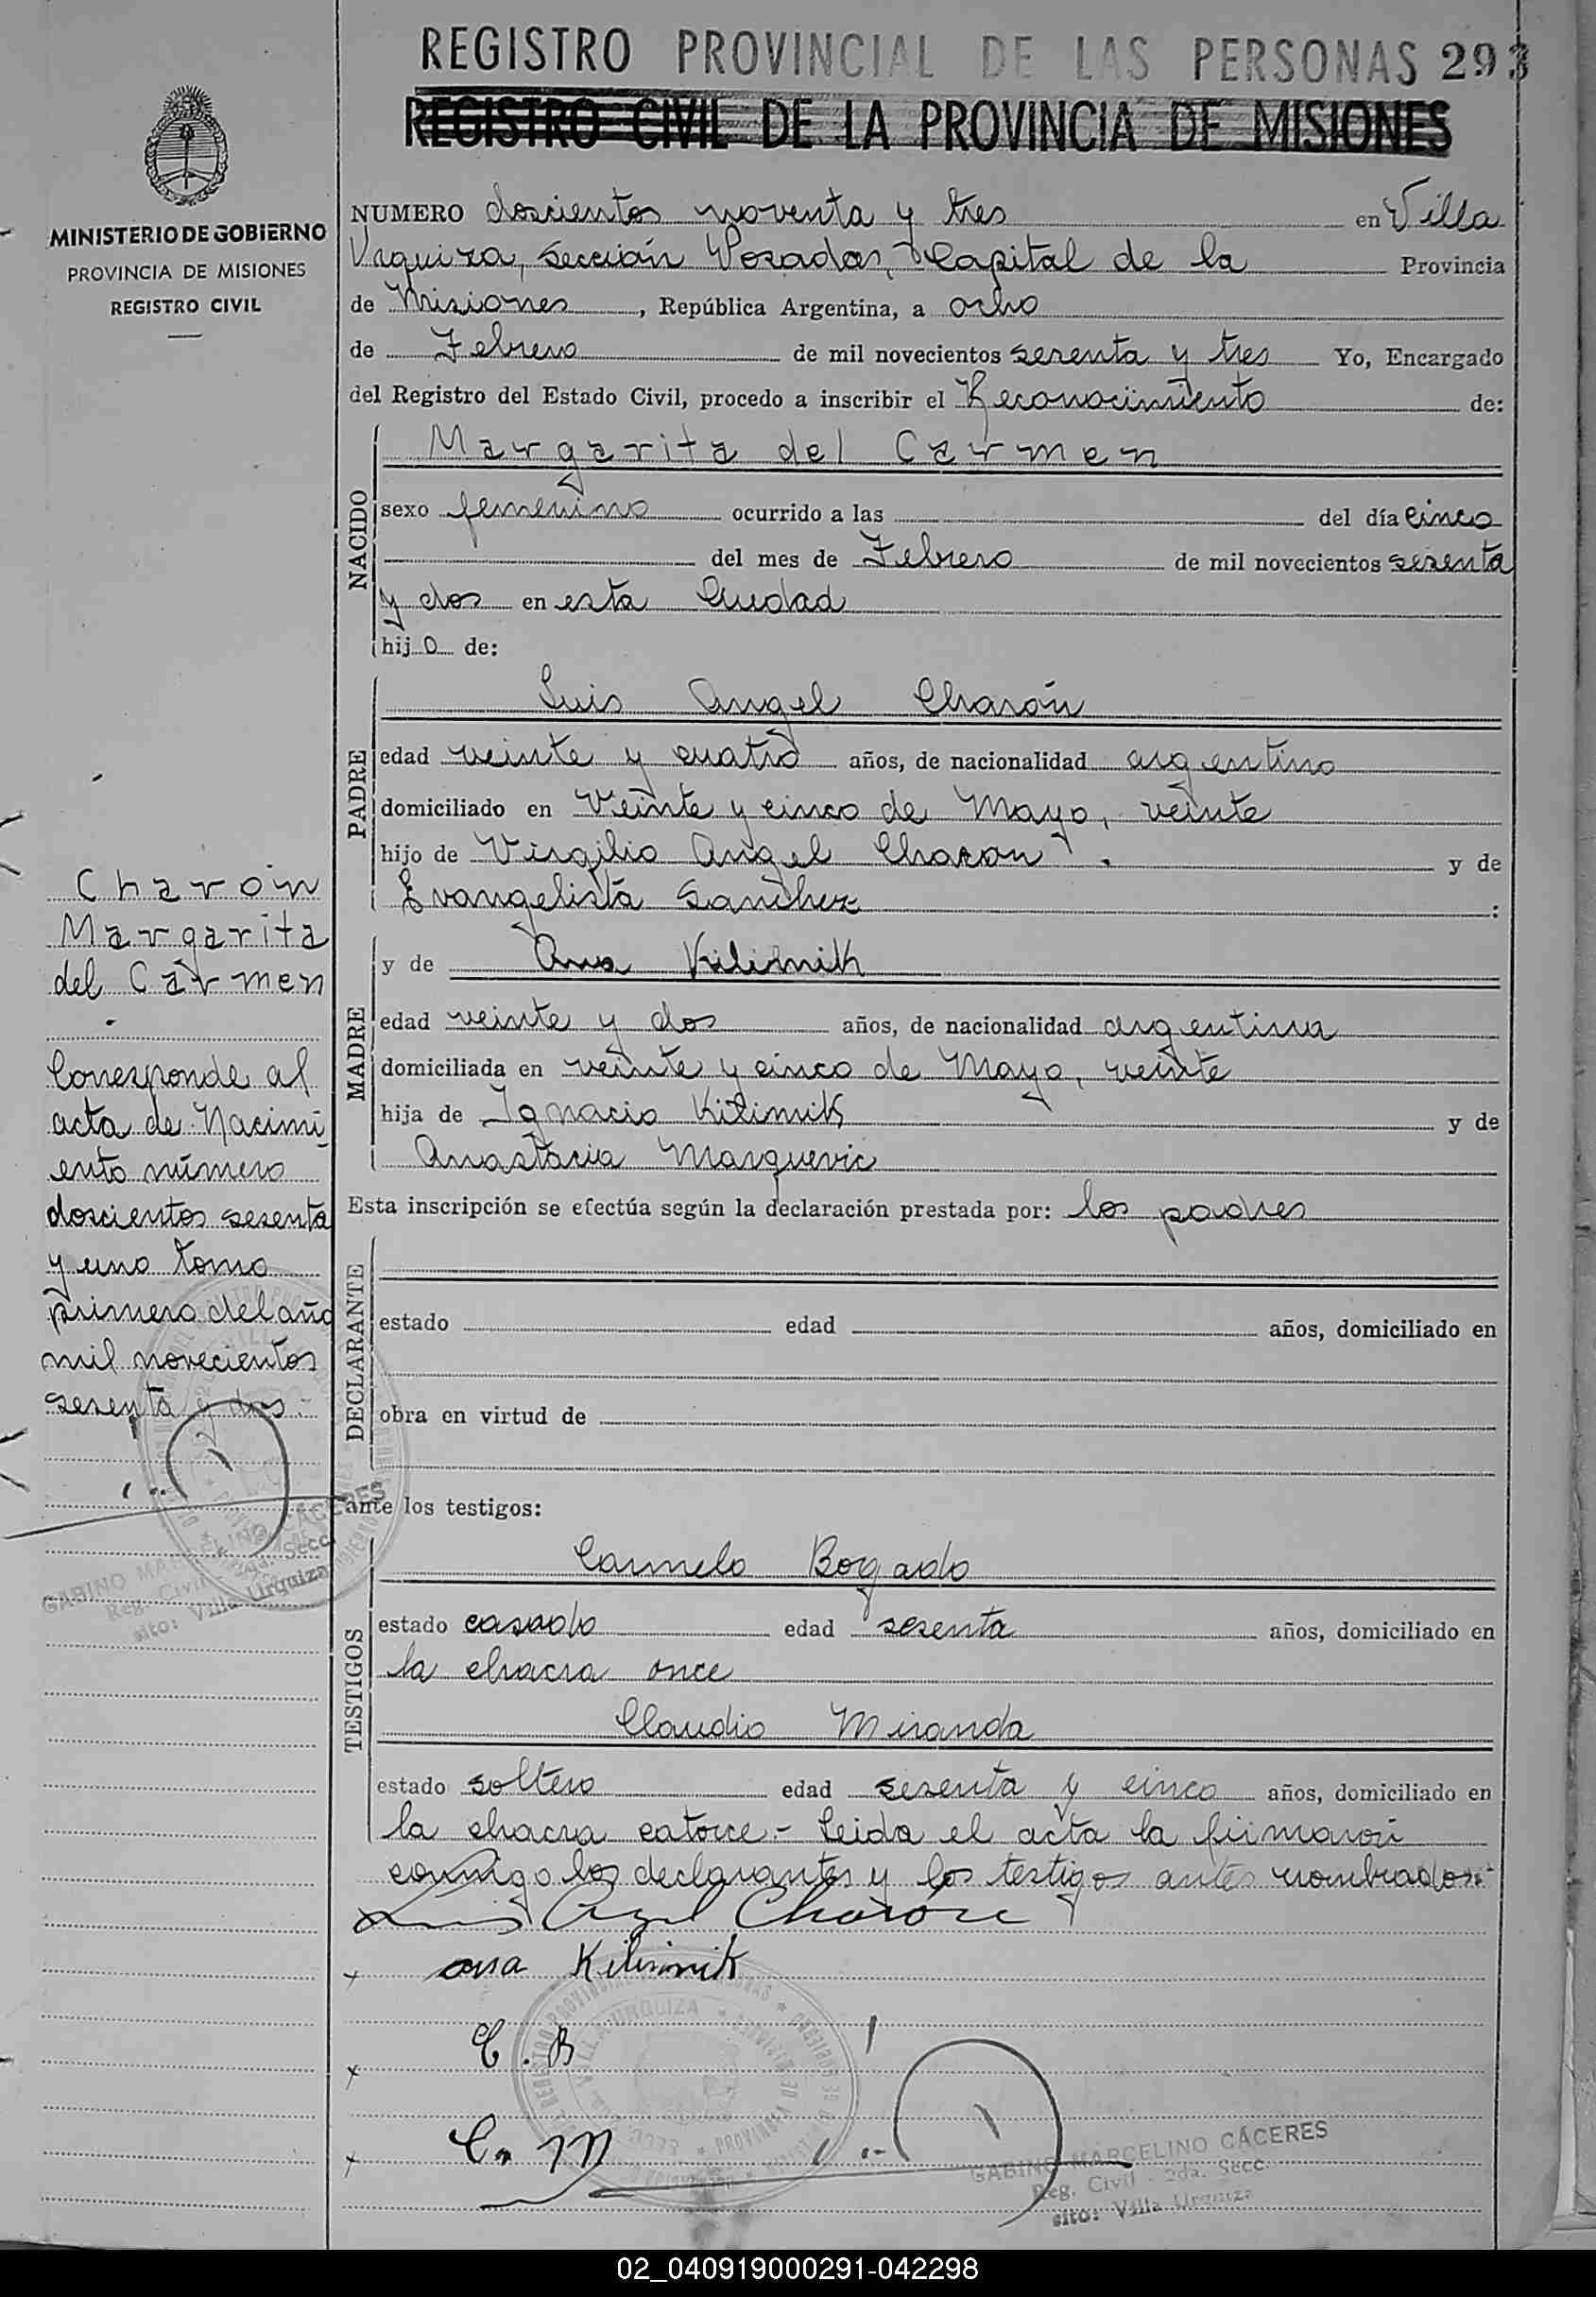 REGISTRO PROVINCIAL DE LAS PERSONAS 293
REGISTRO CIVIL DE LA PROVINCIA DE MISIONES
MINISTERIO DE GOBIERNO
PROVINCIA DE MISIONES
REGISTRO CIVIL
NUMERO doscientos noventa y tres en Villa
Urquiza, sección Posadas, Capital de la Provincia
de Misiones, República Argentina, a ocho
de Febrero de mil novecientos sesenta y tres Yo, Encargado
del Registro del Estado Civil, procedo a inscribir el Reconocimiento de:
NACIDO
Margarita del Carmen
sexo femenino ocurrido a las del día cinco
del mes de Febrero de mil novecientos sesenta
y dos en esta Ciudad
hijo de:
PADRE
Luis Angel Charón
edad veinte y cuatro años, de nacionalidad argentino
domiciliado en Veinte y cinco de Mayo, veinte
hijo de Virgilio Angel Charon y de
Evangelista Sanchez :
MADRE
y de Ana Kilimnik
edad veinte y dos años, de nacionalidad argentina
domiciliada en veinte y cinco de Mayo, veinte
hija de Ignacio Kilimnik y de
Anastacia Marquevic
Esta inscripción se efectúa según la declaración prestada por: los padres
DECLARANTE
estado edad años, domiciliado en
obra en virtud de
ante los testigos:
TESTIGOS
Carmelo Bogado
estado casado edad sesenta años, domiciliado en
la chacra once
Claudio Miranda
estado soltero edad sesenta y cinco años, domiciliado en
la chacra catorce.- Leida el acta la firmaron
conmigo los declarantes y los testigos antes nombrados.-
Luis Angel Charón
x ana Kilimnik
x C. B
x C. M
GABINO MARCELINO CÁCERES
Reg. Civil - 2da. Secc.
sito: Villa Urquiza
Charón
Margarita
del Carmen
Corresponde al
acta de Nacimi
ento número
doscientos sesenta
y uno tomo
primero del año
mil novecientos
sesenta y dos.-
GABINO MA CÁCERES
Reg. Civil - 2da. Secc.
sito: Villa Urquiza
02_040919000291-042298